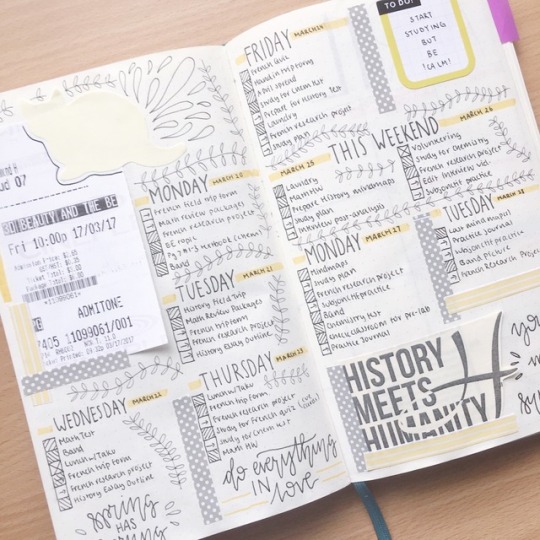 Fri 10:00p 17/03/17
ADMITONE
7405 11099061/001
MONDAY MARCH 20
French field trip form
Math review packages
French research project
BE topic
Band
TUESDAY MARCH 21
History Field Trip
Math Review Packages
French trip form
French research project
History Essay Outline
WEDNESDAY MARCH 22
Math Test
Band
French trip form
French research project
History Essay Outline
spring
HAS
THURSDAY MARCH 23
French trip form
French research project
Study for French quiz
Study for Chem test
Math HW
do everything
IN
love
FRIDAY MARCH 24
French Quiz
Hand in trip form
April spread
Study for Chem test
Prepare for History Test
Laundry
French research project
Study plan
TO DO!
START
STUDYING
BUT
BE
CALM!
THIS WEEKEND
MARCH 25
Laundry
Math HW
Prepare History mindmaps
Study plan
Interview post-analysis
MARCH 26
Volunteering
Study for Chemistry
French research project
Subjonctif practice
MONDAY MARCH 27
Mindmaps
Study plan
French research project
Subjonctif practice
Band
Chemistry test
Practice Journal
TUESDAY
Practice Journal
Subjonctif practice
Band Picture
French Research Project
HISTORY
MEETS
HUMANITY